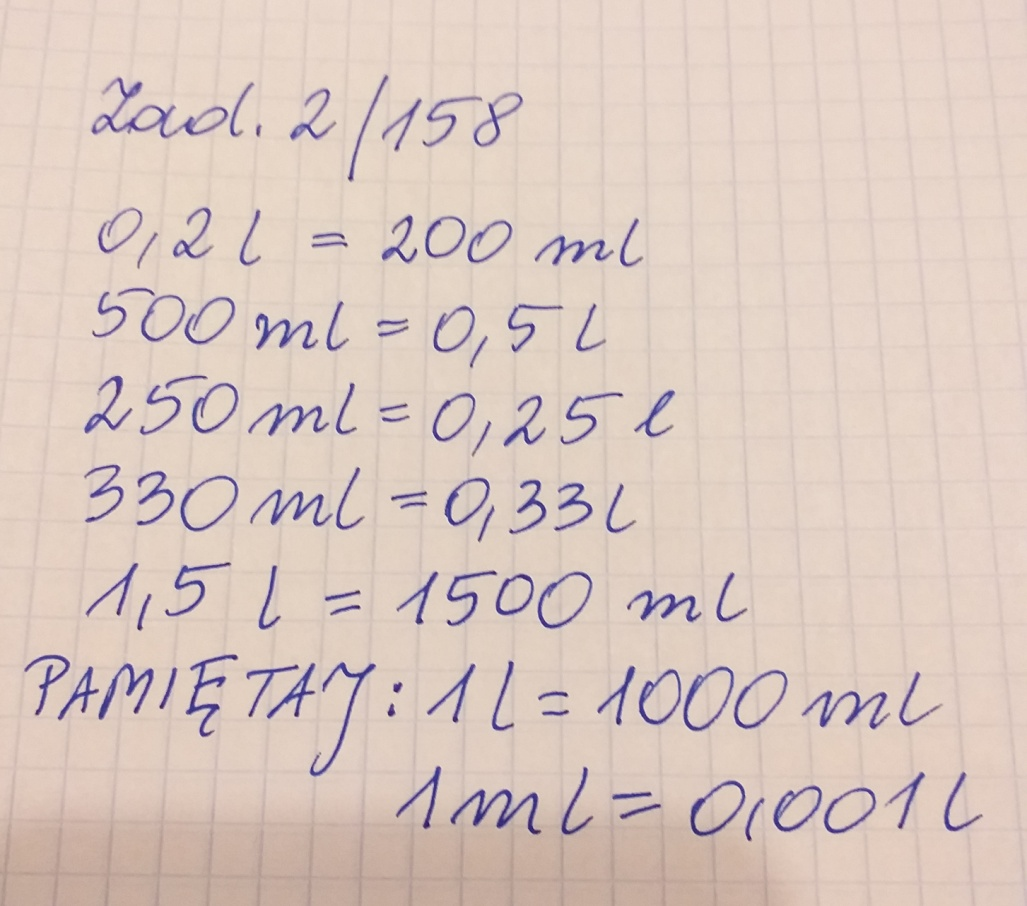 Zad. 2/158
0,2 l = 200 ml
500 ml = 0,5 l
250 ml = 0,25 l
330 ml = 0,33 l
1,5 l = 1500 ml
PAMIĘTAJ: 1 l = 1000 ml
1 ml = 0,001 l